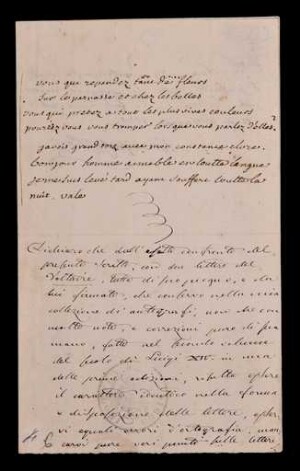 vous que rependez tant de fleurs
sur les parnasse et chez les belles
vous qui pretez a tout les plus vives couleurs
pouriez vous vous tromper lorsque vous parlez d'elles
javois grand tort avec mon
bonjour homme aimable en toutte langue
je me suis levé tard ayant souffert toutte la
nuit. vale
Dichiaro che dall' confronto del
presente scritto, con due lettere del
Voltaire, tutte di suo pugno, e da
lui firmate, che conservo nella mia
collezione di autografi, non che con
molte note, e correzioni pure di sua
mano, fatte nel
del Secolo di Luigi XIV. in una
delle prime edizioni, risulta essere
il carattere identico nella forma
e disposizione delle lettere,
vi eguali errori d'ortografia, man
carvi pure i punti sulle lettere